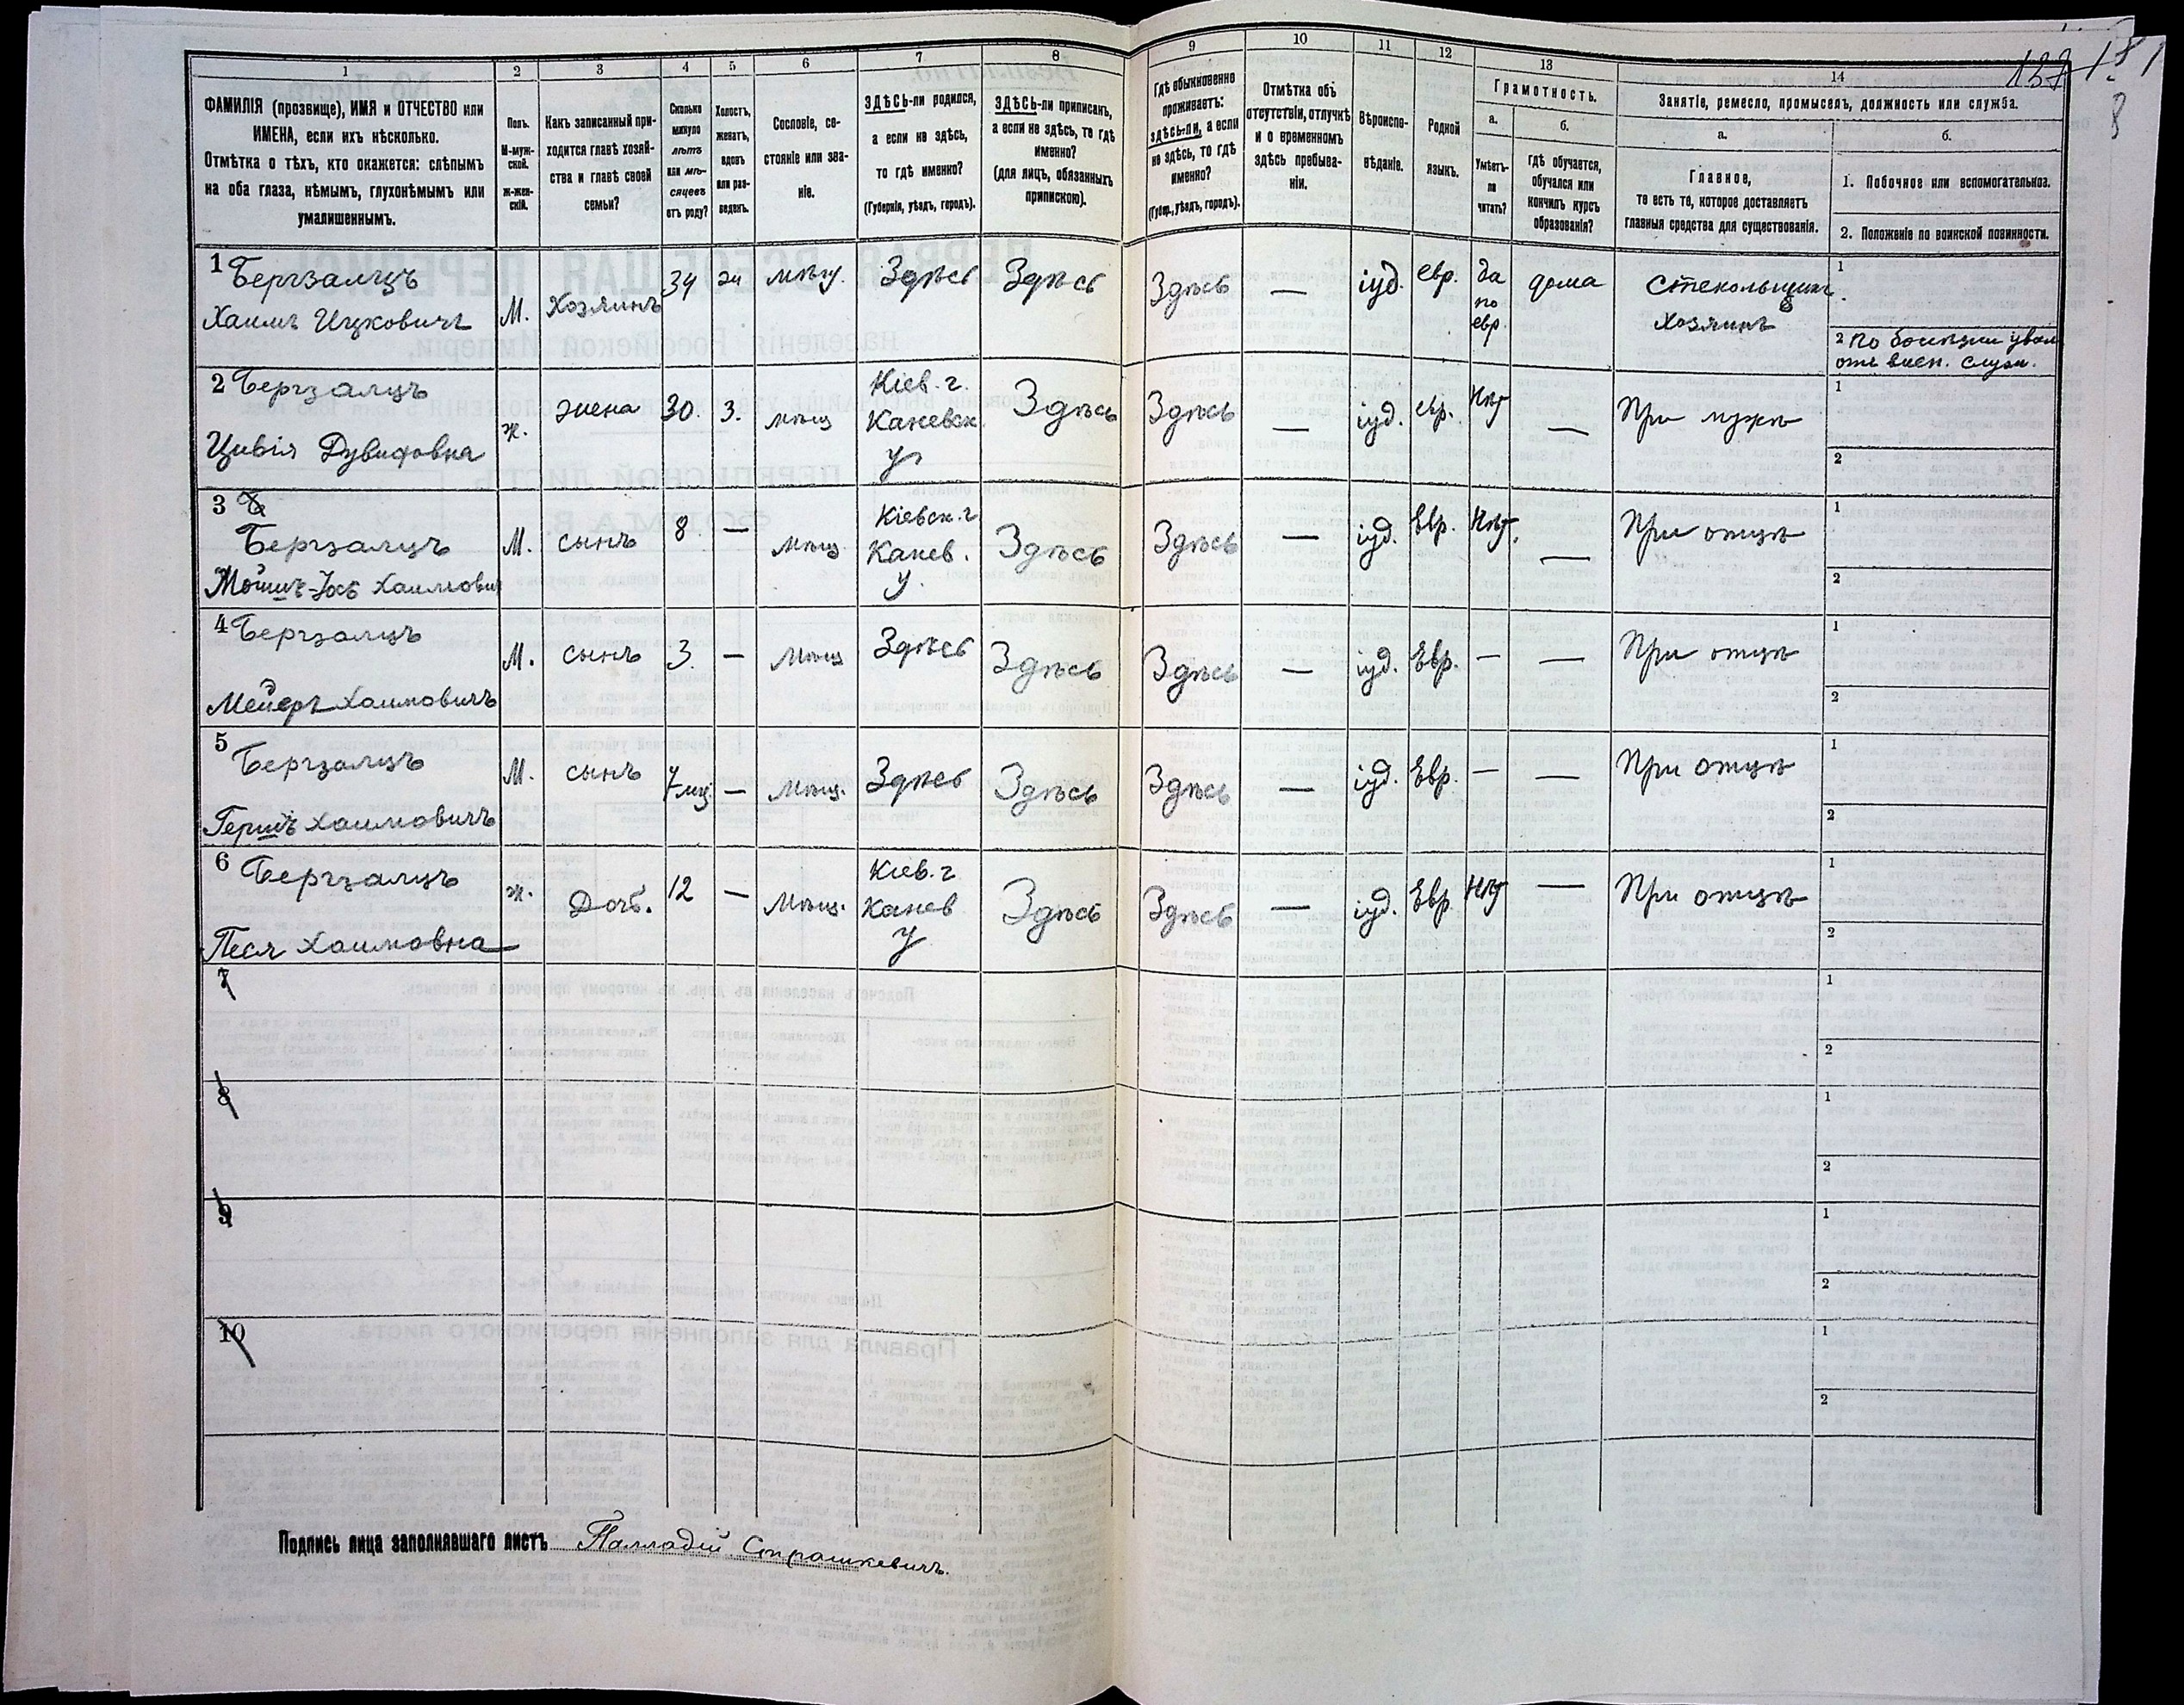 137 181
8
1 2 3 4 5 6 7 8 9 10 11 12 13 14
ФАМИЛІЯ (прозвище), ИМЯ и ОТЧЕСТВО или
ИМЕНА, если ихъ нѣсколько.
Отмѣтка о тѣхъ, кто окажется: слѣпымъ
на оба глаза, нѣмымъ, глухонѣмымъ или
умалишеннымъ.
Полъ.
М-муж-
ской.
Ж-жен-
скій.
Какъ записанный при-
ходится главѣ хозяй-
ства и главѣ своей
семьи?
Сколько
минуло
лѣтъ
или мѣ-
сяцевъ
отъ роду?
Холостъ,
женатъ,
вдовъ
или раз-
веденъ.
Сословіе, со-
стояніе или зва-
ніе.
ЗДѢСЬ-ли родился,
а если не здѣсь,
то гдѣ именно?
(Губернія, уѣздъ, городъ).
ЗДѢСЬ-ли приписанъ,
а если не здѣсь, то гдѣ
именно?
(для лицъ, обязанныхъ
припискою).
Гдѣ обыкновенно
проживаетъ:
здѣсь-ли, а если
не здѣсь, то гдѣ
именно?
(Губер., уѣздъ, городъ).
Отмѣтка объ
отсутствіи, отлучкѣ
и о временномъ
здѣсь пребыва-
ніи.
Вѣроиспо-
вѣданіе.
Родной
языкъ.
Грамотность.
а.
Умѣетъ-
ли
читать?
б.
гдѣ обучается,
обучался или
кончилъ курсъ
образованія?
Занятіе, ремесло, промыселъ, должность или служба.
а.
Главное,
то есть то, которое доставляетъ
главныя средства для существованія.
б.
1. Побочное или вспомогательное.
2. Положеніе по воинской повинности.
1 Бергзалцъ
Хаимъ Ицковичъ
М.
Хозяинъ
34
Здѣсь
Здѣсь
Здѣсь
—
іуд.
евр.
да
по
евр.
дома
Стекольщикъ
Хозяинъ
1
2 по болѣзни увол
отъ воен. служ.
2 Бергзалцъ
Цивія Дувидовна
ж.
жена
30.
З.
мѣщ
Кіев. г.
Каневск
у
Здѣсь
Здѣсь
—
іуд.
евр.
Нѣт
—
При мужѣ
1
2
3
Бергзалцъ
Хаимови
М.
сынъ
8
—
мѣщ
Кіевск. г
Канев.
у.
Здѣсь
Здѣсь
—
іуд.
Евр.
Нѣт.
—
При отцѣ
1
2
4 Бергзалцъ
Мейеръ Хаимовичъ
М.
сынъ
3.
—
Мѣщ
Здѣсь
Здѣсь
Здѣсь
—
іуд.
Евр.
—
—
При отцѣ
1
2
5
Бергзалцъ
Гершъ Хаимовичъ
М.
сынъ
7 мц.
—
Мѣщ.
Здѣсь
Здѣсь
Здѣсь
—
іуд.
Евр.
—
—
При отцѣ
1
2
6 Бергзалцъ
Песя Хаимовна
ж.
Дочь.
12
—
Мѣщ.
Кіев. г
Канев
у
Здѣсь
Здѣсь
—
іуд.
Евр.
Нѣт
—
При отцѣ
1
2
7
1
2
8
1
2
9
1
2
10
1
2
Подпись лица заполнявшаго листъ Палладій Страшкевичъ.